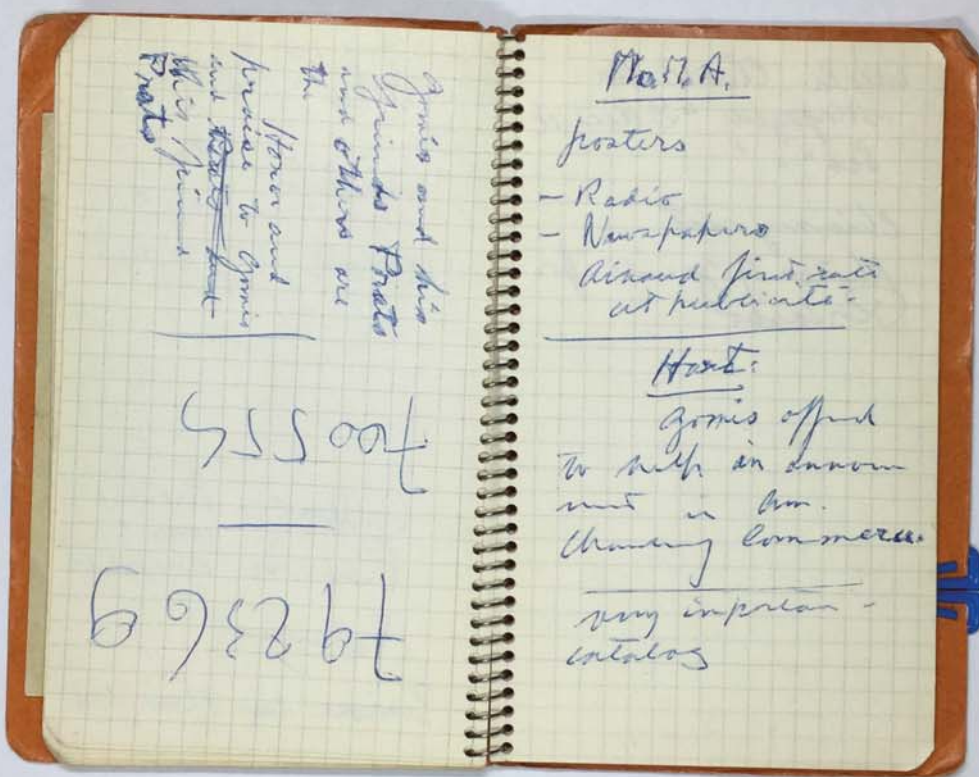 Gomis and his
friends Prats
and others are
the
Honor and
praise to Gomis
and Prats and
his friend
Prats
M.o.M.A.
posters
- Radio
- Newspapers
first rate
at publicité.
Gomis offered
to help in announ
ment in Am.
Commerce.
very important
catalog